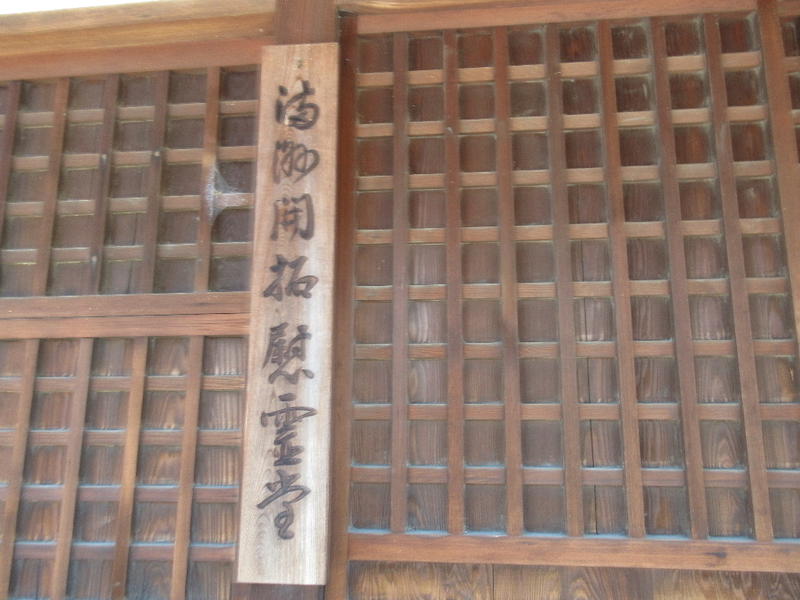 満洲開拓慰霊堂